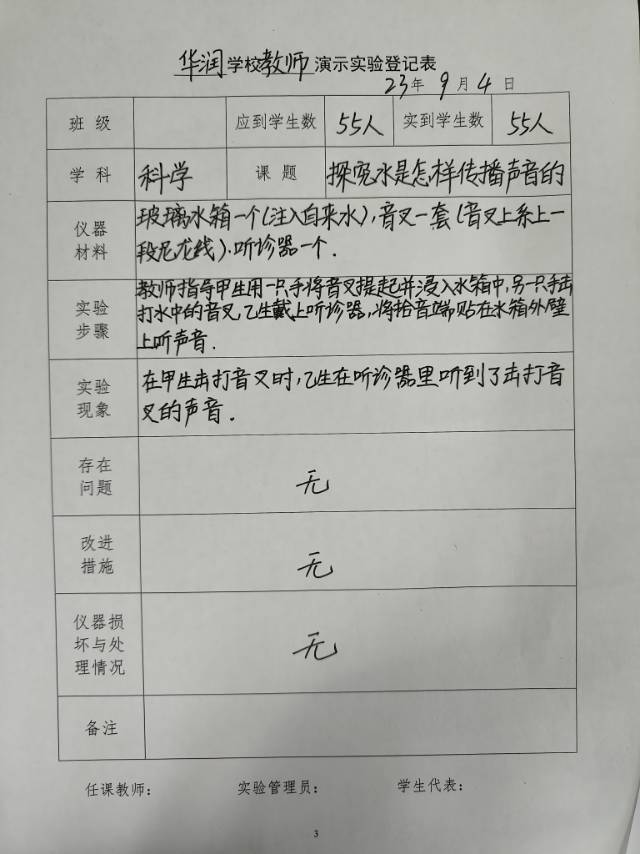 华润学校教师演示实验登记表
23年9月4日
班级 应到学生数 55人 实到学生数 55人
学科 科学 课题 探究水是怎样传播声音的
仪器材料 玻璃水箱一个(注入自来水),音叉一套(音叉上系上一
段尼龙线).听诊器一个.
实验步骤 教师指导甲生用一只手将音叉提起并浸入水箱中,另一只手击
打水中的音叉,乙生戴上听诊器,将拾音端贴在水箱外壁
上听声音.
实验现象 在甲生击打音叉时,乙生在听诊器里听到了击打音
叉的声音.
存在问题 无
改进措施 无
仪器损坏与处理情况 无
备注
任课教师: 实验管理员: 学生代表:
3